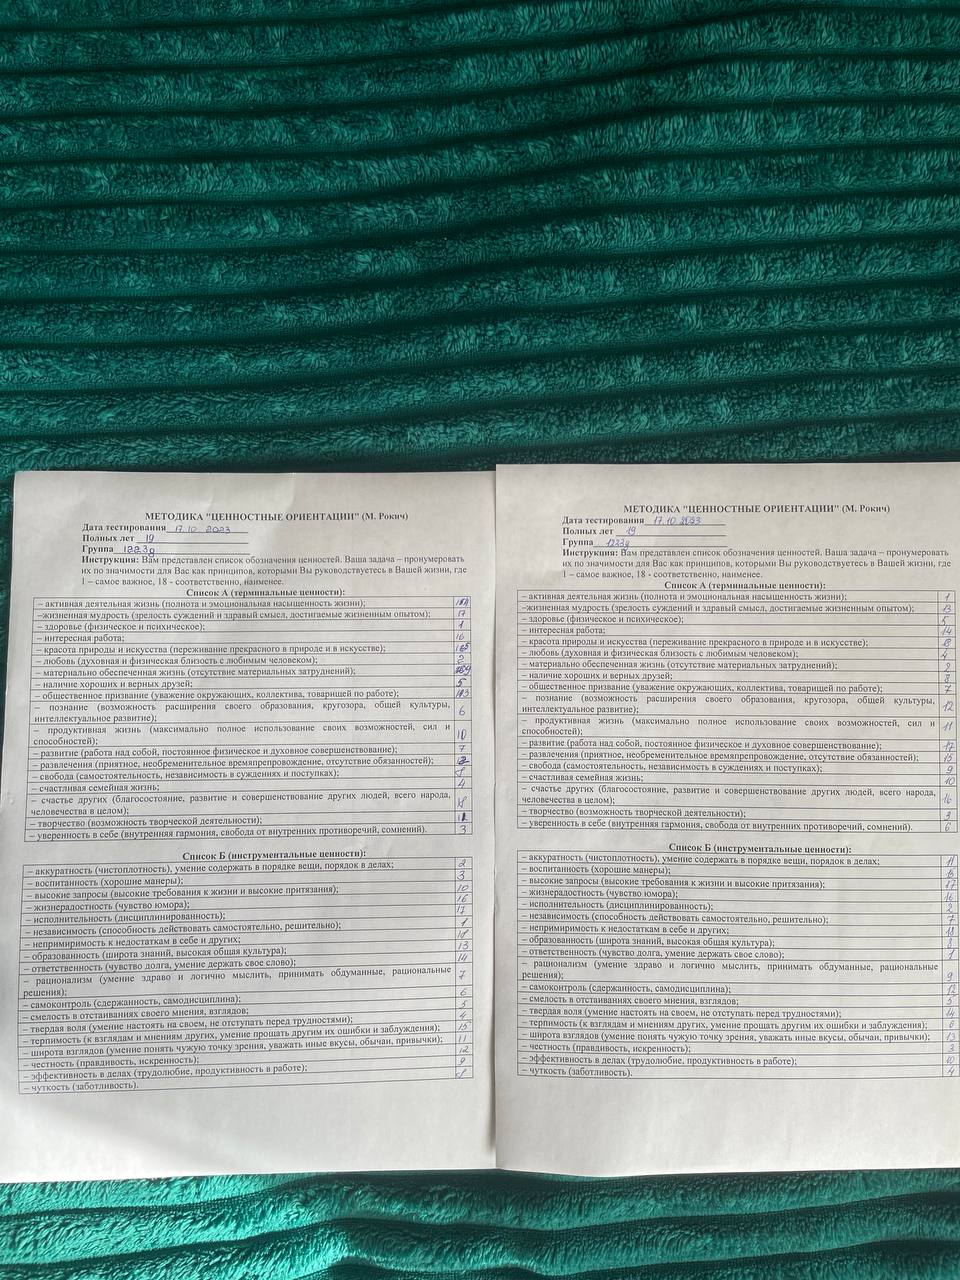 МЕТОДИКА "ЦЕННОСТНЫЕ ОРИЕНТАЦИИ" (М. Рокич)
Дата тестирования 17.10 2023
Полных лет 19
Группа 1223д
Инструкция: Вам представлен список обозначения ценностей. Ваша задача – пронумеровать
их по значимости для Вас как принципов, которыми Вы руководствуетесь в Вашей жизни, где
1 – самое важное, 18 - соответственно, наименее.
Список А (терминальные ценности):
– активная деятельная жизнь (полнота и эмоциональная насыщенность жизни);
–жизненная мудрость (зрелость суждений и здравый смысл, достигаемые жизненным опытом); 17
– здоровье (физическое и психическое); 1
– интересная работа; 16
– красота природы и искусства (переживание прекрасного в природе и в искусстве);
– любовь (духовная и физическая близость с любимым человеком); 2
– материально обеспеченная жизнь (отсутствие материальных затруднений);
– наличие хороших и верных друзей; 5
– общественное призвание (уважение окружающих, коллектива, товарищей по работе);
– познание (возможность расширения своего образования, кругозора, общей культуры,
интеллектуальное развитие); 6
– продуктивная жизнь (максимально полное использование своих возможностей, сил и
способностей); 10
– развитие (работа над собой, постоянное физическое и духовное совершенствование); 7
– развлечения (приятное, необременительное времяпрепровождение, отсутствие обязанностей);
– свобода (самостоятельность, независимость в суждениях и поступках);
– счастливая семейная жизнь; 4
– счастье других (благосостояние, развитие и совершенствование других людей, всего народа,
человечества в целом); 18
– творчество (возможность творческой деятельности);
– уверенность в себе (внутренняя гармония, свобода от внутренних противоречий, сомнений). 3
Список Б (инструментальные ценности):
– аккуратность (чистоплотность), умение содержать в порядке вещи, порядок в делах; 2
– воспитанность (хорошие манеры); 3
– высокие запросы (высокие требования к жизни и высокие притязания); 10
– жизнерадостность (чувство юмора); 16
– исполнительность (дисциплинированность); 17
– независимость (способность действовать самостоятельно, решительно); 1
– непримиримость к недостаткам в себе и других; 18
– образованность (широта знаний, высокая общая культура); 13
– ответственность (чувство долга, умение держать свое слово); 14
– рационализм (умение здраво и логично мыслить, принимать обдуманные, рациональные
решения); 7
– самоконтроль (сдержанность, самодисциплина); 6
– смелость в отстаиваниях своего мнения, взглядов; 5
– твердая воля (умение настоять на своем, не отступать перед трудностями); 4
– терпимость (к взглядам и мнениям других, умение прощать другим их ошибки и заблуждения); 15
– широта взглядов (умение понять чужую точку зрения, уважать иные вкусы, обычаи, привычки); 11
– честность (правдивость, искренность); 12
– эффективность в делах (трудолюбие, продуктивность в работе); 9
– чуткость (заботливость). 8
МЕТОДИКА "ЦЕННОСТНЫЕ ОРИЕНТАЦИИ" (М. Рокич)
Дата тестирования 17.10.2023
Полных лет 19
Группа 1223д
Инструкция: Вам представлен список обозначения ценностей. Ваша задача – пронумеровать
их по значимости для Вас как принципов, которыми Вы руководствуетесь в Вашей жизни, где
1 – самое важное, 18 - соответственно, наименее.
Список А (терминальные ценности):
– активная деятельная жизнь (полнота и эмоциональная насыщенность жизни); 1
–жизненная мудрость (зрелость суждений и здравый смысл, достигаемые жизненным опытом); 13
– здоровье (физическое и психическое); 5
– интересная работа; 14
– красота природы и искусства (переживание прекрасного в природе и в искусстве); 18
– любовь (духовная и физическая близость с любимым человеком); 4
– материально обеспеченная жизнь (отсутствие материальных затруднений); 2
– наличие хороших и верных друзей; 8
– общественное призвание (уважение окружающих, коллектива, товарищей по работе); 7
– познание (возможность расширения своего образования, кругозора, общей культуры,
интеллектуальное развитие); 12
– продуктивная жизнь (максимально полное использование своих возможностей, сил и
способностей); 11
– развитие (работа над собой, постоянное физическое и духовное совершенствование); 17
– развлечения (приятное, необременительное времяпрепровождение, отсутствие обязанностей); 15
– свобода (самостоятельность, независимость в суждениях и поступках); 9
– счастливая семейная жизнь; 10
– счастье других (благосостояние, развитие и совершенствование других людей, всего народа,
человечества в целом); 16
– творчество (возможность творческой деятельности); 3
– уверенность в себе (внутренняя гармония, свобода от внутренних противоречий, сомнений). 6
Список Б (инструментальные ценности):
– аккуратность (чистоплотность), умение содержать в порядке вещи, порядок в делах; 11
– воспитанность (хорошие манеры);
– высокие запросы (высокие требования к жизни и высокие притязания); 17
– жизнерадостность (чувство юмора); 16
– исполнительность (дисциплинированность); 2
– независимость (способность действовать самостоятельно, решительно); 7
– непримиримость к недостаткам в себе и других; 18
– образованность (широта знаний, высокая общая культура); 8
– ответственность (чувство долга, умение держать свое слово); 1
– рационализм (умение здраво и логично мыслить, принимать обдуманные, рациональные
решения); 9
– самоконтроль (сдержанность, самодисциплина); 12
– смелость в отстаиваниях своего мнения, взглядов; 5
– твердая воля (умение настоять на своем, не отступать перед трудностями); 14
– терпимость (к взглядам и мнениям других, умение прощать другим их ошибки и заблуждения); 6
– широта взглядов (умение понять чужую точку зрения, уважать иные вкусы, обычаи, привычки); 13
– честность (правдивость, искренность); 3
– эффективность в делах (трудолюбие, продуктивность в работе); 10
– чуткость (заботливость). 4